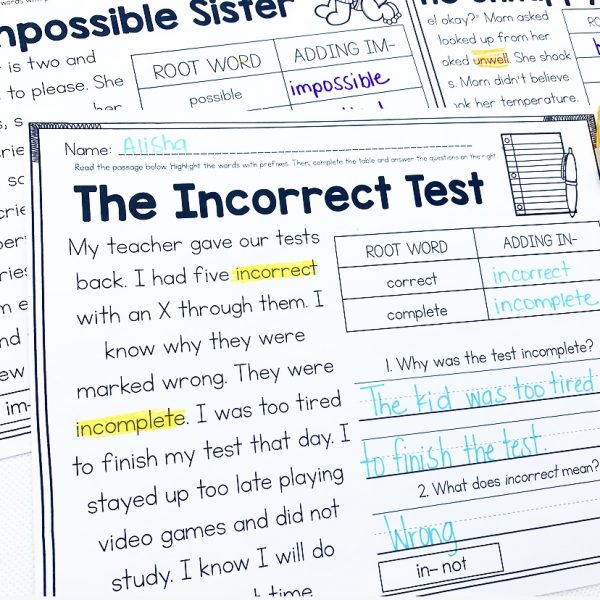 mpossible Sister
is two and
to please. She
her
ROOT WORD ADDING IM-
possible impossible
el okay?" Mom asked
looked up from her
oked unwell. She shook
s. Mom didn't believe
her temperature.
Name: Alisha
Read the passage below. Highlight the words with prefixes. Then, complete the table and answer the questions on the right
The Incorrect Test
My teacher gave our tests
back. I had five incorrect
with an X through them. I
know why they were
marked wrong. They were
incomplete. I was too tired
to finish my test that day. I
stayed up too late playing
video games and did not
study. I know I will do
time.
ROOT WORD ADDING IN-
correct incorrect
complete incomplete
1. Why was the test incomplete?
The kid was too tired
to finish the test.
2. What does incorrect mean?
Wrong
in- not
im-